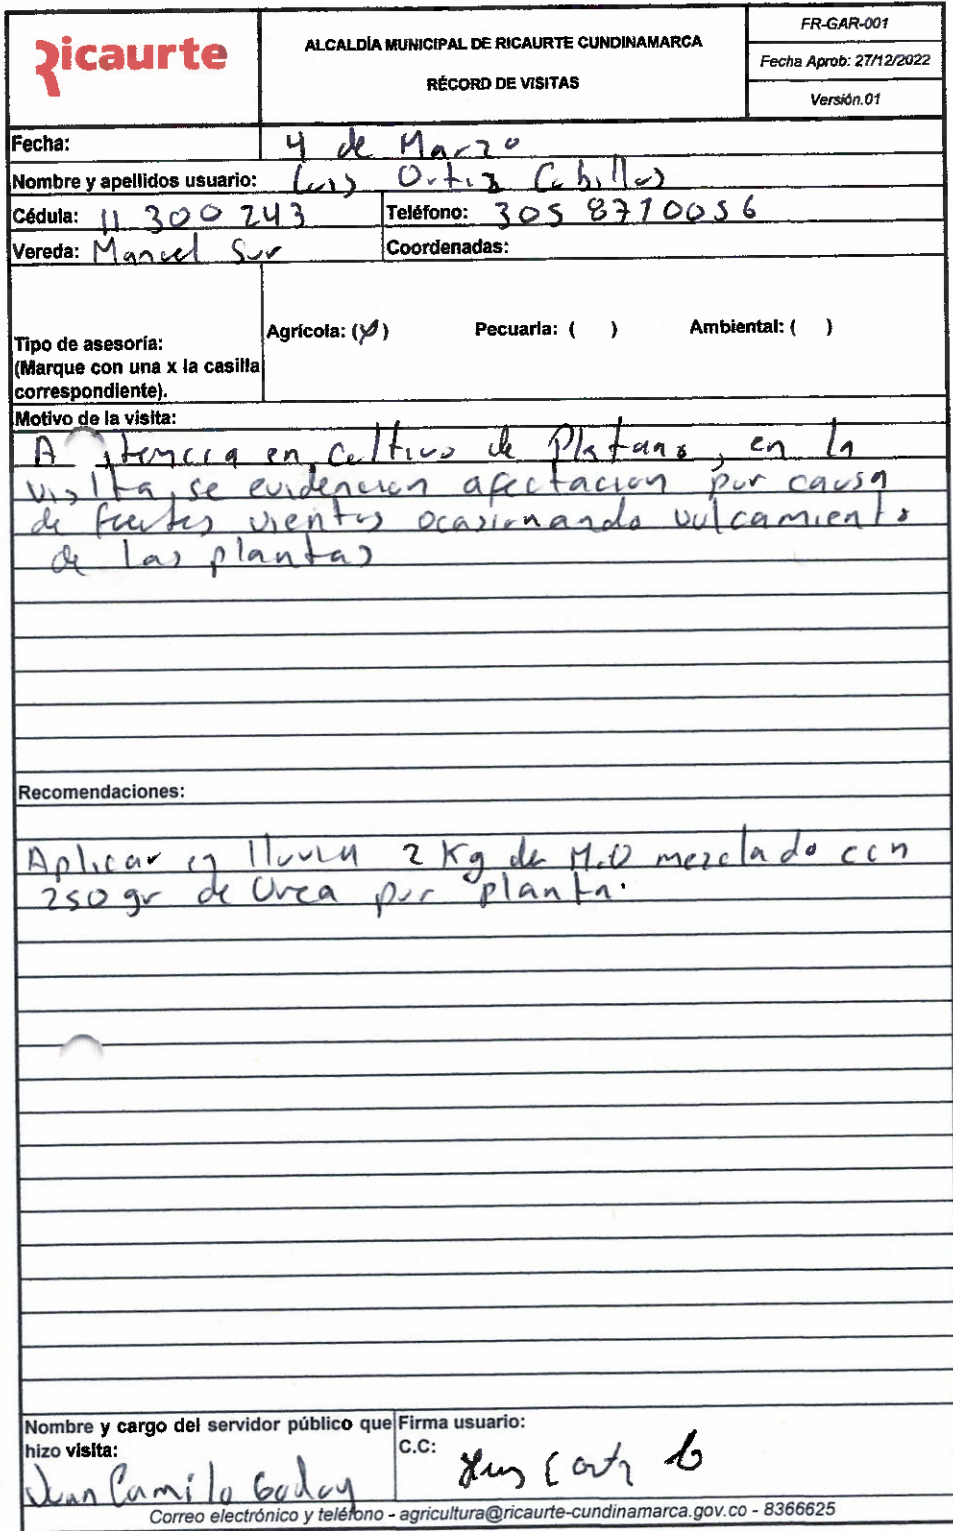 Ricaurte
ALCALDÍA MUNICIPAL DE RICAURTE CUNDINAMARCA
RÉCORD DE VISITAS
FR-GAR-001
Fecha Aprob: 27/12/2022
Versión.01
Fecha: 4 de Marzo
Nombre y apellidos usuario: Luis Ortiz
Cédula: 11 300 243 Teléfono: 305 8710056
Vereda: Manuel Sur Coordenadas:
Tipo de asesoría:
(Marque con una x la casilla
correspondiente).
Agrícola: (X) Pecuaria: ( ) Ambiental: ( )
Motivo de la visita:
A tencia en Cultivo de Platano, en la
visita, se evidencian afectacion por causa
de fuertes vientos ocasionando vulcamiento
de las plantas
Recomendaciones:
Aplicar en lluvia 2 Kg de M.O mezclado con
250 gr de Urea por planta.
Nombre y cargo del servidor público que
hizo visita:
Juan Camilo Godoy
Firma usuario:
C.C:
Correo electrónico y teléfono - agricultura@ricaurte-cundinamarca.gov.co - 8366625